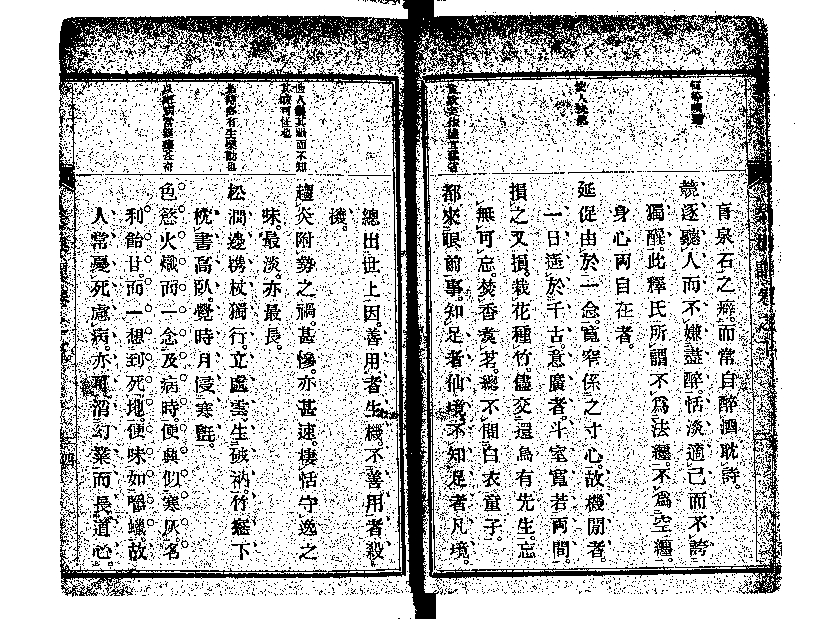 盲泉石之癖而常自醉酒耽詩。
競逐聽人而不嫌盡醉恬淡適己而不誇
獨醒此釋氏所謂不爲法纏不爲空纏
身心兩自在者。
延促由於一念寬窄係之寸心故機閒者
一日遙於千古意廣者斗室寬若兩間。
損之又損栽花種竹儘交還烏有先生忘
無可忘焚香煮茗總不問白衣童子。
都來眼前事知足者仙境不知足者凡境。
總出世上因善用者生機不善用者殺
機。
趨炎附勢之禍甚慘亦甚速棲恬守逸之
味最淡亦最長。
松澗邊攜杖獨行立處雲生破衲竹窗下
枕書高臥覺時月侵寒氈。
色慾火熾而一念及病時便興似寒灰名
利飴甘而一想到死地便味如嚼蠟故
人常憂死慮病亦可消幻業而長道心。